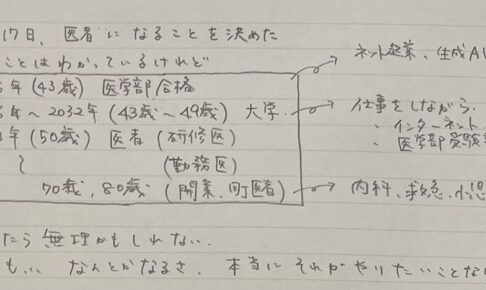 17日、医者になることを決めた
ことはわかっているけれど
ネット起業、生成A
年(43歳) 医学部合格
年～2032年(43歳～49歳) 大学
仕事をしながら
・インターネット
・医学部受験
年(50歳) 医者(研修医)
(勤務医)
70歳、80歳(開業、町医者)
内科、救急、小児
たら無理かもしれない.
も... なんとかなるさ. 本当にそれがやりたいことな